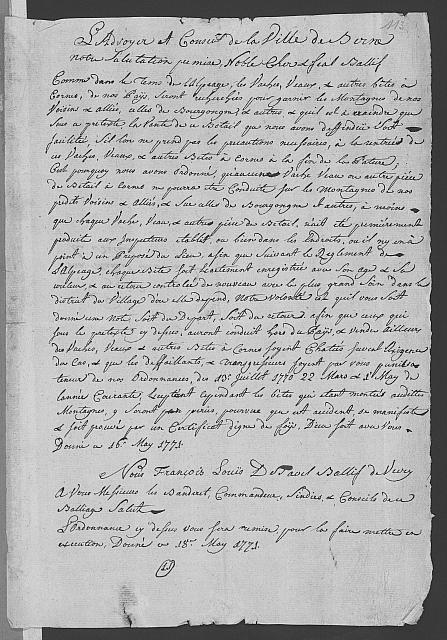 113
L'Advoyer et Conseil de la Ville de Berne
notre Salutation premise, Noble Cher & feal Ballif
Comme dans le Tems de l'Alpeage, les Vaches, Veaux, & autres betes à
Corne, de nos Païs, seront recherchés pour garnir les Montagnes de nos
Voisins & alliés, celles de Bourgogne, & autres & qu'il est à craindre que
sous ce preteste la Vente de ce Betail que nous avons deffendüe soit
facilitée, si l'on ne prend pas les precautions necessaires, à la rentrée de
ces Vaches, Veaux, & autres Betes à Cornes à la fin de la Pature;
C'est pourquoy nous avons ordonné, qu'aucune Vache Veau ou autre piece
de Betail à corne ne pourra etre Conduite sur les Montagnes de nos
predits Voisins & Alliés, & sur celles de Bourgogne & autres, à moins
que chaque Vache, Veau, & autres piece de Betail, n'ait été premierement
produite aux Inspecteurs etablis, ou bien dans les Endroits, ou il n'y en a
point à un Preposé du Lieu, afin que suivant le Reglement de
l'Alpeage chaque Bête soit exactement enregistrée avec son age & sa
couleur, & au retour controlée de nouveau avec le plus grand soin dans le
district du Village d'ou elle depend, Notre Volonté est qu'il vous soit
donné une Note, soit du depart, soit du retour, afin que ceux qui
sous le preteste cy dessus, auront conduit hors du Païs, & vendu ailleurs
des Vaches, Veaux & autres Betes à Cornes soyent Chatiés suivant l'exigence
du Cas, & que les deffaillants, & transgresseurs soyent par vous punis
teneur de nos Ordonnances, des 13e Juillet 1770 22 Mars & 1 May de
l'année Courante, exeptant cependant les betes qui etant montées auxdites
Montagnes, y seront peries, pourvu que cet accident, soit manifeste
& soit prouvé par un Certificat digne de foy, Dieu soit avec Vous.
Donné ce 16e May 1771.
Nous François Louis De Tavel Ballif de Vevey
A Vous Messieurs les Banderet, Commandeur, Sindics, & Conseils de ce
Balliage Salut.
L'Ordonnance cy dessus vous sera remise, pour la faire mettre en
execution, Donné ce 18e May 1771.